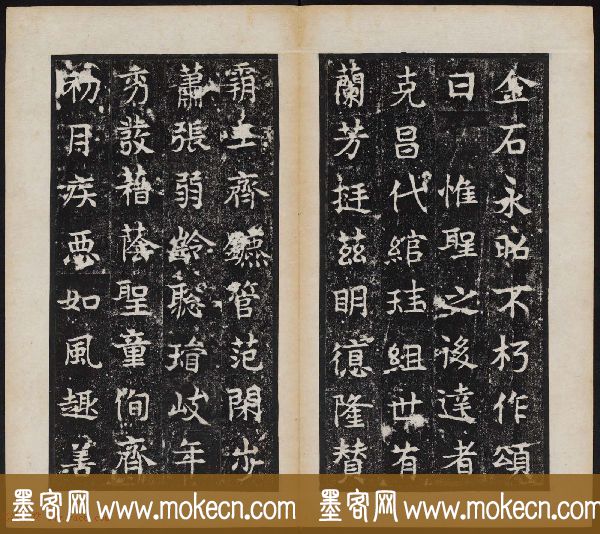 金石永昭不朽作頌
曰 惟聖之後達者
克昌代綰珪組世有
蘭芳挺茲明德隆贊
霸 齊 管范閑步
蕭張弱齡聡 岐年
秀發藉蔭聖童恂齊
初月疾惡如風趣善
墨客网 www.mokecn.com 墨客网 www.mokecn.com